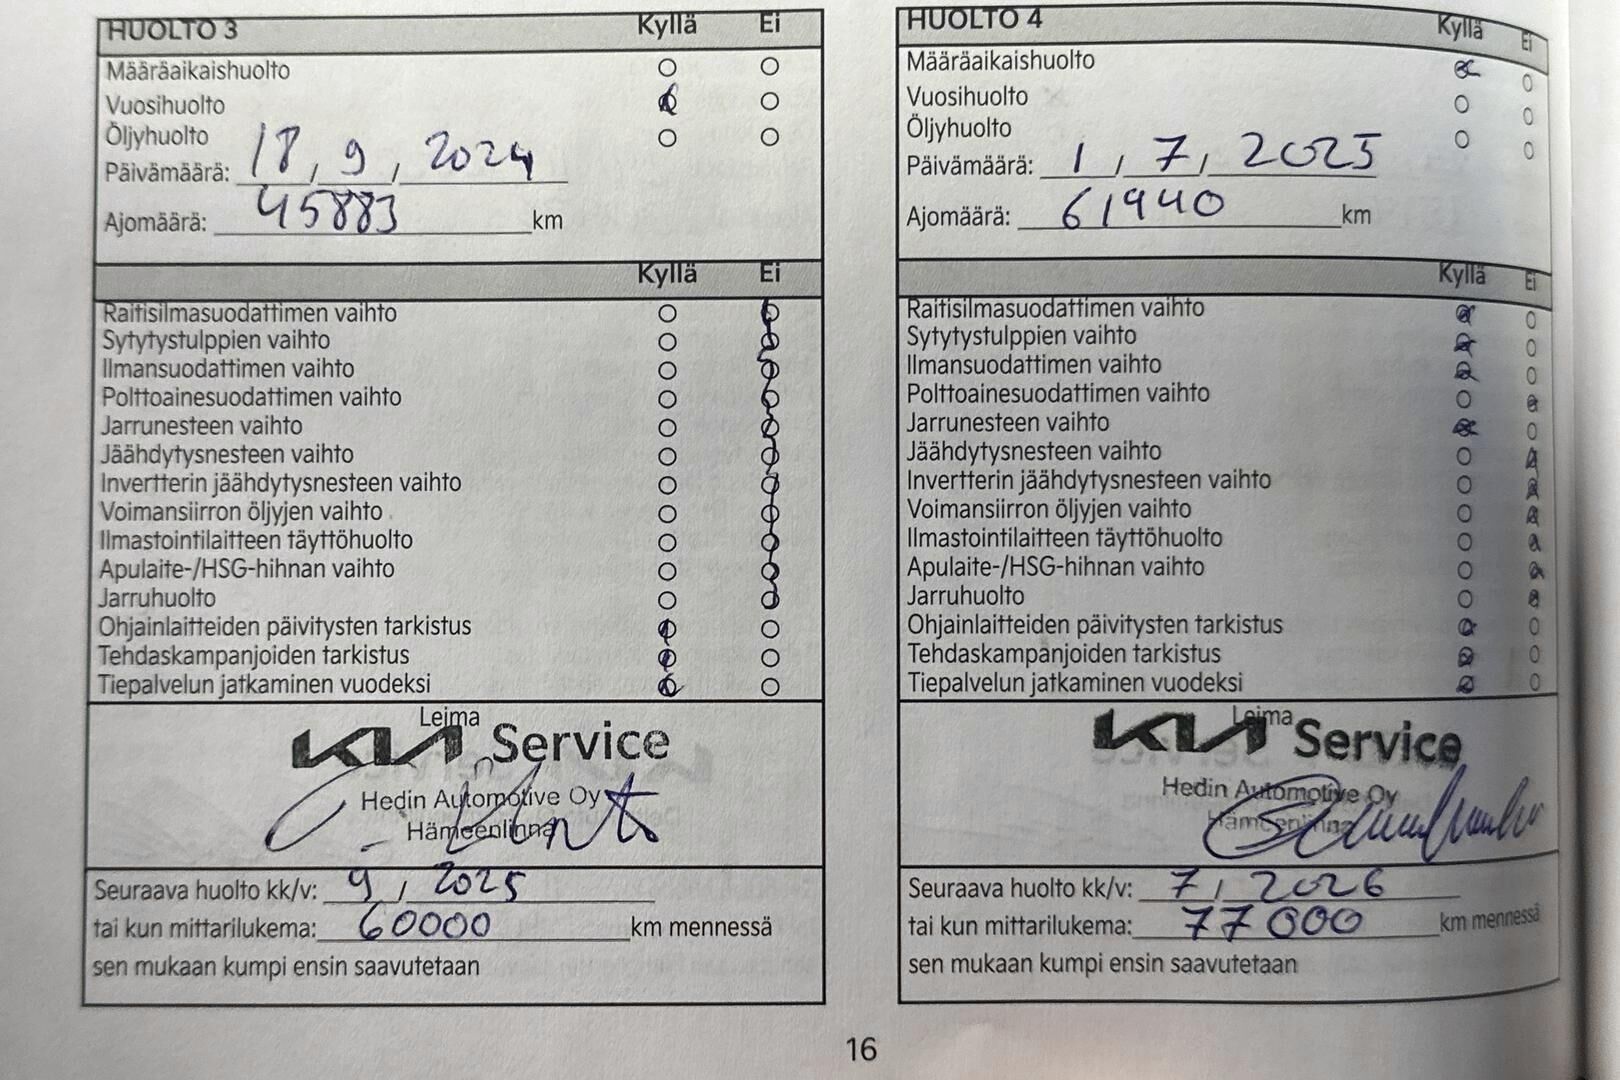 HUOLTO 3 Kyllä Ei
Määräaikaishuolto
Vuosihuolto
Öljyhuolto
Päivämäärä: 18, 9, 2024
Ajomäärä: 45883 km
Kyllä Ei
Raitisilmasuodattimen vaihto
Sytytystulppien vaihto
Ilmansuodattimen vaihto
Polttoainesuodattimen vaihto
Jarrunesteen vaihto
Jäähdytysnesteen vaihto
Invertterin jäähdytysnesteen vaihto
Voimansiirron öljyjen vaihto
Ilmastointilaitteen täyttöhuolto
Apulaite-/HSG-hihnan vaihto
Jarruhuolto
Ohjainlaitteiden päivitysten tarkistus
Tehdaskampanjoiden tarkistus
Tiepalvelun jatkaminen vuodeksi
Leima
KIA Service
Hedin Automotive Oy
Hämeenlinna
Seuraava huolto kk/v: 9 / 2025
tai kun mittarilukema: 60000 km mennessä
sen mukaan kumpi ensin saavutetaan
HUOLTO 4 Kyllä Ei
Määräaikaishuolto
Vuosihuolto
Öljyhuolto
Päivämäärä: 1, 7, 2025
Ajomäärä: 61940 km
Kyllä Ei
Raitisilmasuodattimen vaihto
Sytytystulppien vaihto
Ilmansuodattimen vaihto
Polttoainesuodattimen vaihto
Jarrunesteen vaihto
Jäähdytysnesteen vaihto
Invertterin jäähdytysnesteen vaihto
Voimansiirron öljyjen vaihto
Ilmastointilaitteen täyttöhuolto
Apulaite-/HSG-hihnan vaihto
Jarruhuolto
Ohjainlaitteiden päivitysten tarkistus
Tehdaskampanjoiden tarkistus
Tiepalvelun jatkaminen vuodeksi
Leima
KIA Service
Hedin Automotive Oy
Hämeenlinna
Seuraava huolto kk/v: 7 / 2026
tai kun mittarilukema: 77000 km mennessä
sen mukaan kumpi ensin saavutetaan
16